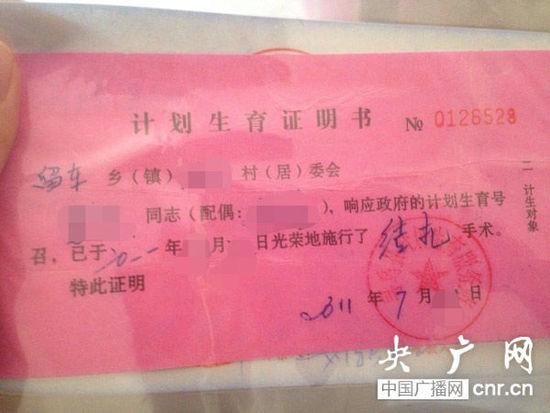 计划生育证明书 № 0126528
留车 乡(镇) 村(居)委会
同志(配偶: ),响应政府的计划生育号
召,已于二〇一一年 月 日光荣地施行了 结扎 手术。
特此证明
2011 年 7 月 日
二 计生对象
央广网
中国广播网 cnr.cn